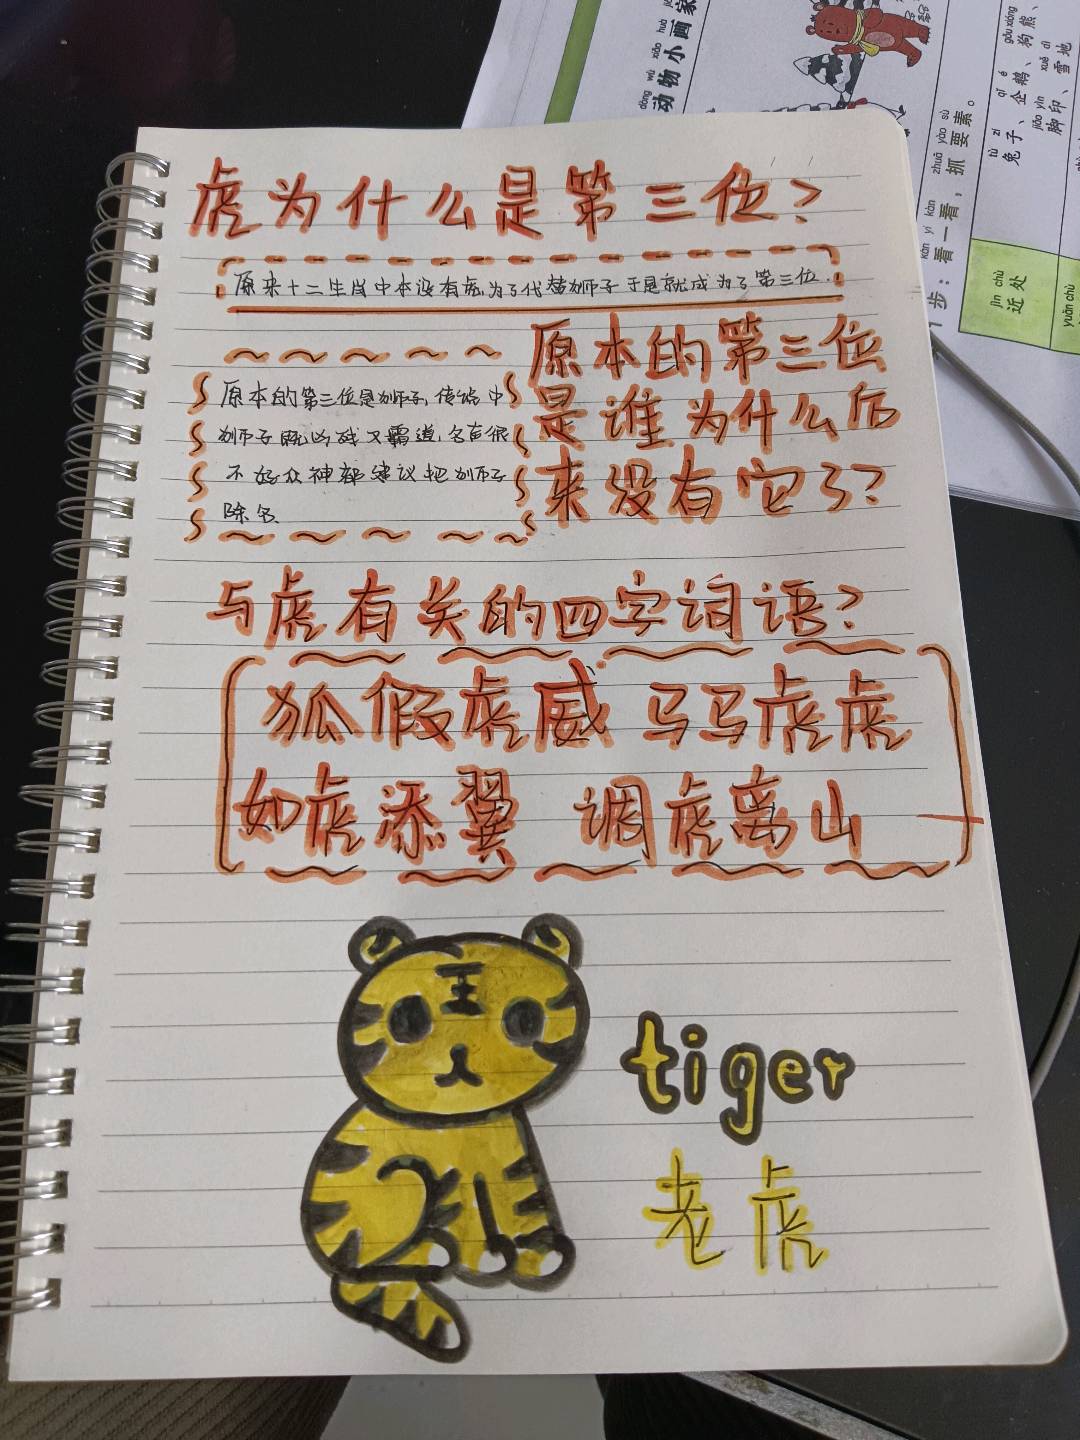 虎为什么是第三位?
原来十二生肖中本没有虎,为了代替狮子于是就成为了第三位.
原本的第三位
是谁为什么后
来没有它了?
原本的第三位是狮子,传说中
狮子既凶残又霸道,名声很
不好众神都建议把狮子
除名
与虎有关的四字词语?
狐假虎威 马马虎虎
如虎添翼 调虎离山
tiger
老虎
dòng wù xiǎo huà jiā
动物小画家
kàn yí kàn zhuā yào sù
步:看一看,抓要素。
tù zi qǐ é gǒu xióng
兔子、企鹅、狗熊、
jiǎo yìn xuě dì
脚印、雪地
jìn chù
近处
yuǎn chù